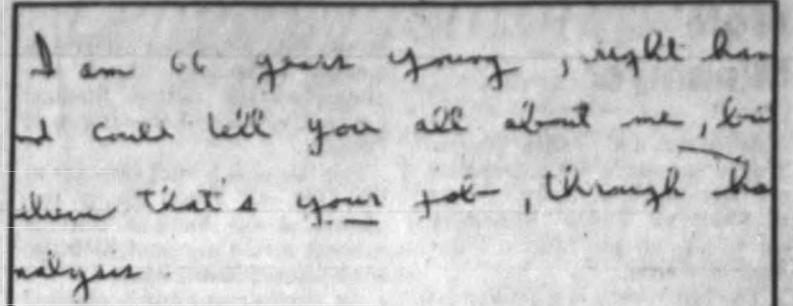 I am 66 years young, right han
nd could tell you all about me, but
that's your job, through ha
nalysis